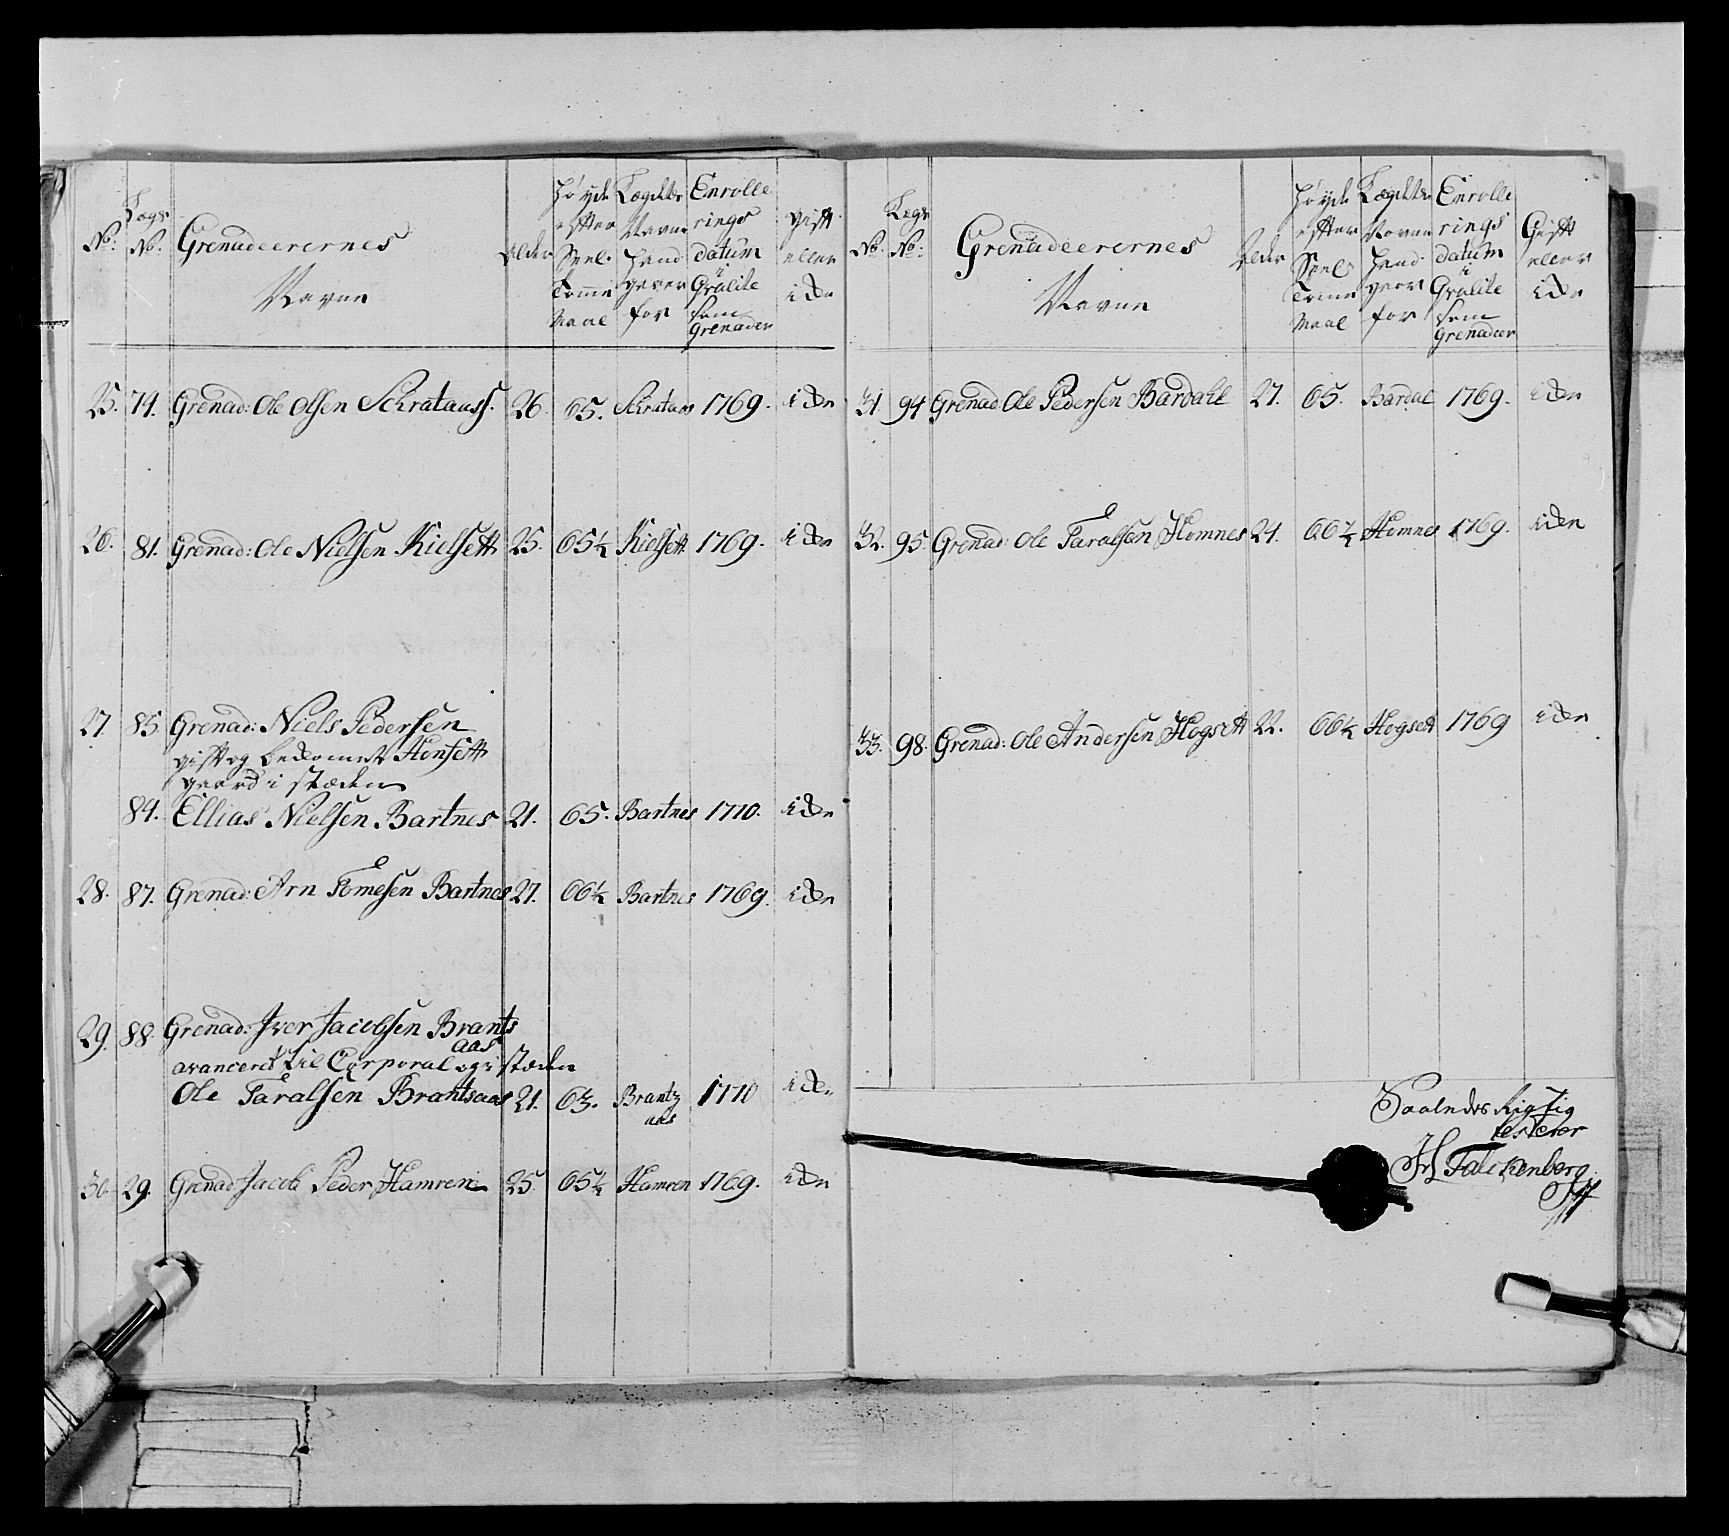 No: Lægs No: Grenadeerernes Navne Alder Høyde efter Siel. Tomme Maal Lægdets Navne hand giører for Enrolle rings datum i Qvalite som grenader gift eller icke
25. 74. Grenad: Ole Olsen Schratauss. 26. 65. Schratas 1769. icke
26. 81. Grenad: Ole Nielsen Kielsett 25. 65½ Kielsett 1769. icke
27. 85 Grenad: Niels Pedersen
gift og bekommet Hensett
gaard i stæden
84. Ellias Nielsen Bartnes 21. 65. Bartnes 1770. icke
28. 87. Grenad: Arn Tomesen Bartnes 27. 66½ Bartnes 1769. icke
29. 88. Grenad: Iver Jacobsen Brants
aas
avanceret til Corporal og i stæden
Ole Taralsen Brantsaas 21. 63. Brantz 1770 icke
aas
30. 29. Grenad: Jacob Peder Hamren 25. 65½ Hamren 1769. icke
No. Lægs No: Grenadeerernes Navne Alder Høyde efter Siels Tomme Maal Lægdets Navne hand giør for Enrolle rings datum i Qvalite som grenadeer Gift eller icke
31 94 Grenad Ole Pedersen Bardahl 27. 65. Bardal 1769. icke
32. 95. Grenad: Ole Taralsen Homnes 24. 66½ Homnes 1769. icke
33. 98. Grenad: Ole Andersen Hogsett 22. 66½ Hogsett 1769 icke
Saaledes Rigtig
testerer
Falckenberg